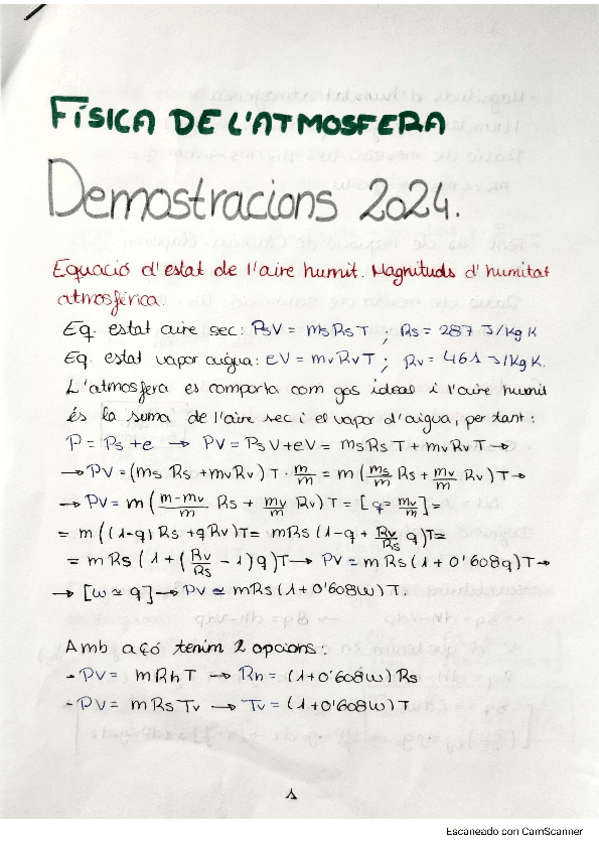 FÍSICA DE L'ATMOSFERA
Demostracions 2024.
Equació d'estat de l'aire humit. Magnituds d'humitat
atmosférica.
Eq. estat aire sec: PsV = msRsT ; Rs = 287 J/kg K
Eq. estat vapor aigua: eV = mvRvT ; Rv = 461 J/kg K.
L'atmosfera es comporta com gas ideal i l'aire humil
és la suma de l'aire sec i el vapor d'aigua, per tant:
P = Ps + e → PV = PsV + eV = msRsT + mvRvT →
→ PV = (ms Rs + mvRv) T · m/m = m (ms/m Rs + mv/m Rv) T →
→ PV = m (m-mv/m Rs + mv/m Rv) T = [q = mv/m] =
= m ((1-q) Rs + qRv) T = mRs (1-q + Rv/Rs q) T =
= mRs (1 + (Rv/Rs - 1) q) T → PV = mRs (1 + 0'608q) T →
→ [w ≃ q] → PV ≃ mRs (1 + 0'608w) T.
Amb açó tenim 2 opcions:
- PV = mRhT → Rh = (1 + 0'608w) Rs
- PV = mRsTv → Tv = (1 + 0'608w) T
1
Escaneado con CamScanner